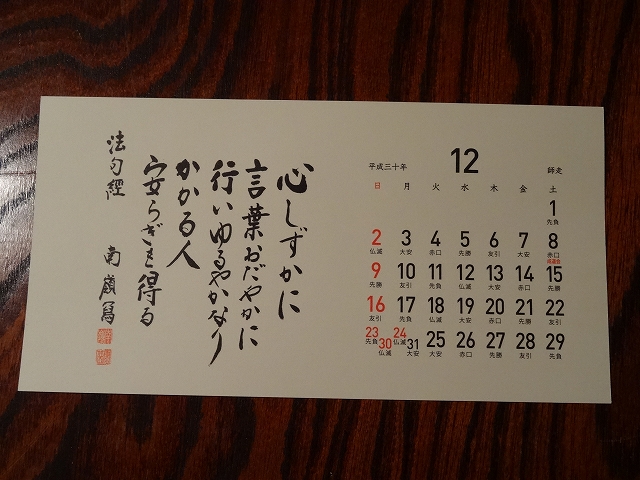 心しずかに
言葉おだやかに
行いゆるやかなり
かかる人
安らぎを得る
法句經 南嶺寫
平成三十年 12 師走
日 月 火 水 木 金 土
1
先負
2 3 4 5 6 7 8
仏滅 大安 赤口 先勝 友引 大安 赤口
成道会
9 10 11 12 13 14 15
先勝 友引 先負 仏滅 大安 赤口 先勝
16 17 18 19 20 21 22
友引 先負 仏滅 大安 赤口 先勝 友引
23 30 24 31 25 26 27 28 29
先負 仏滅 仏滅 大安 大安 赤口 先勝 友引 先負